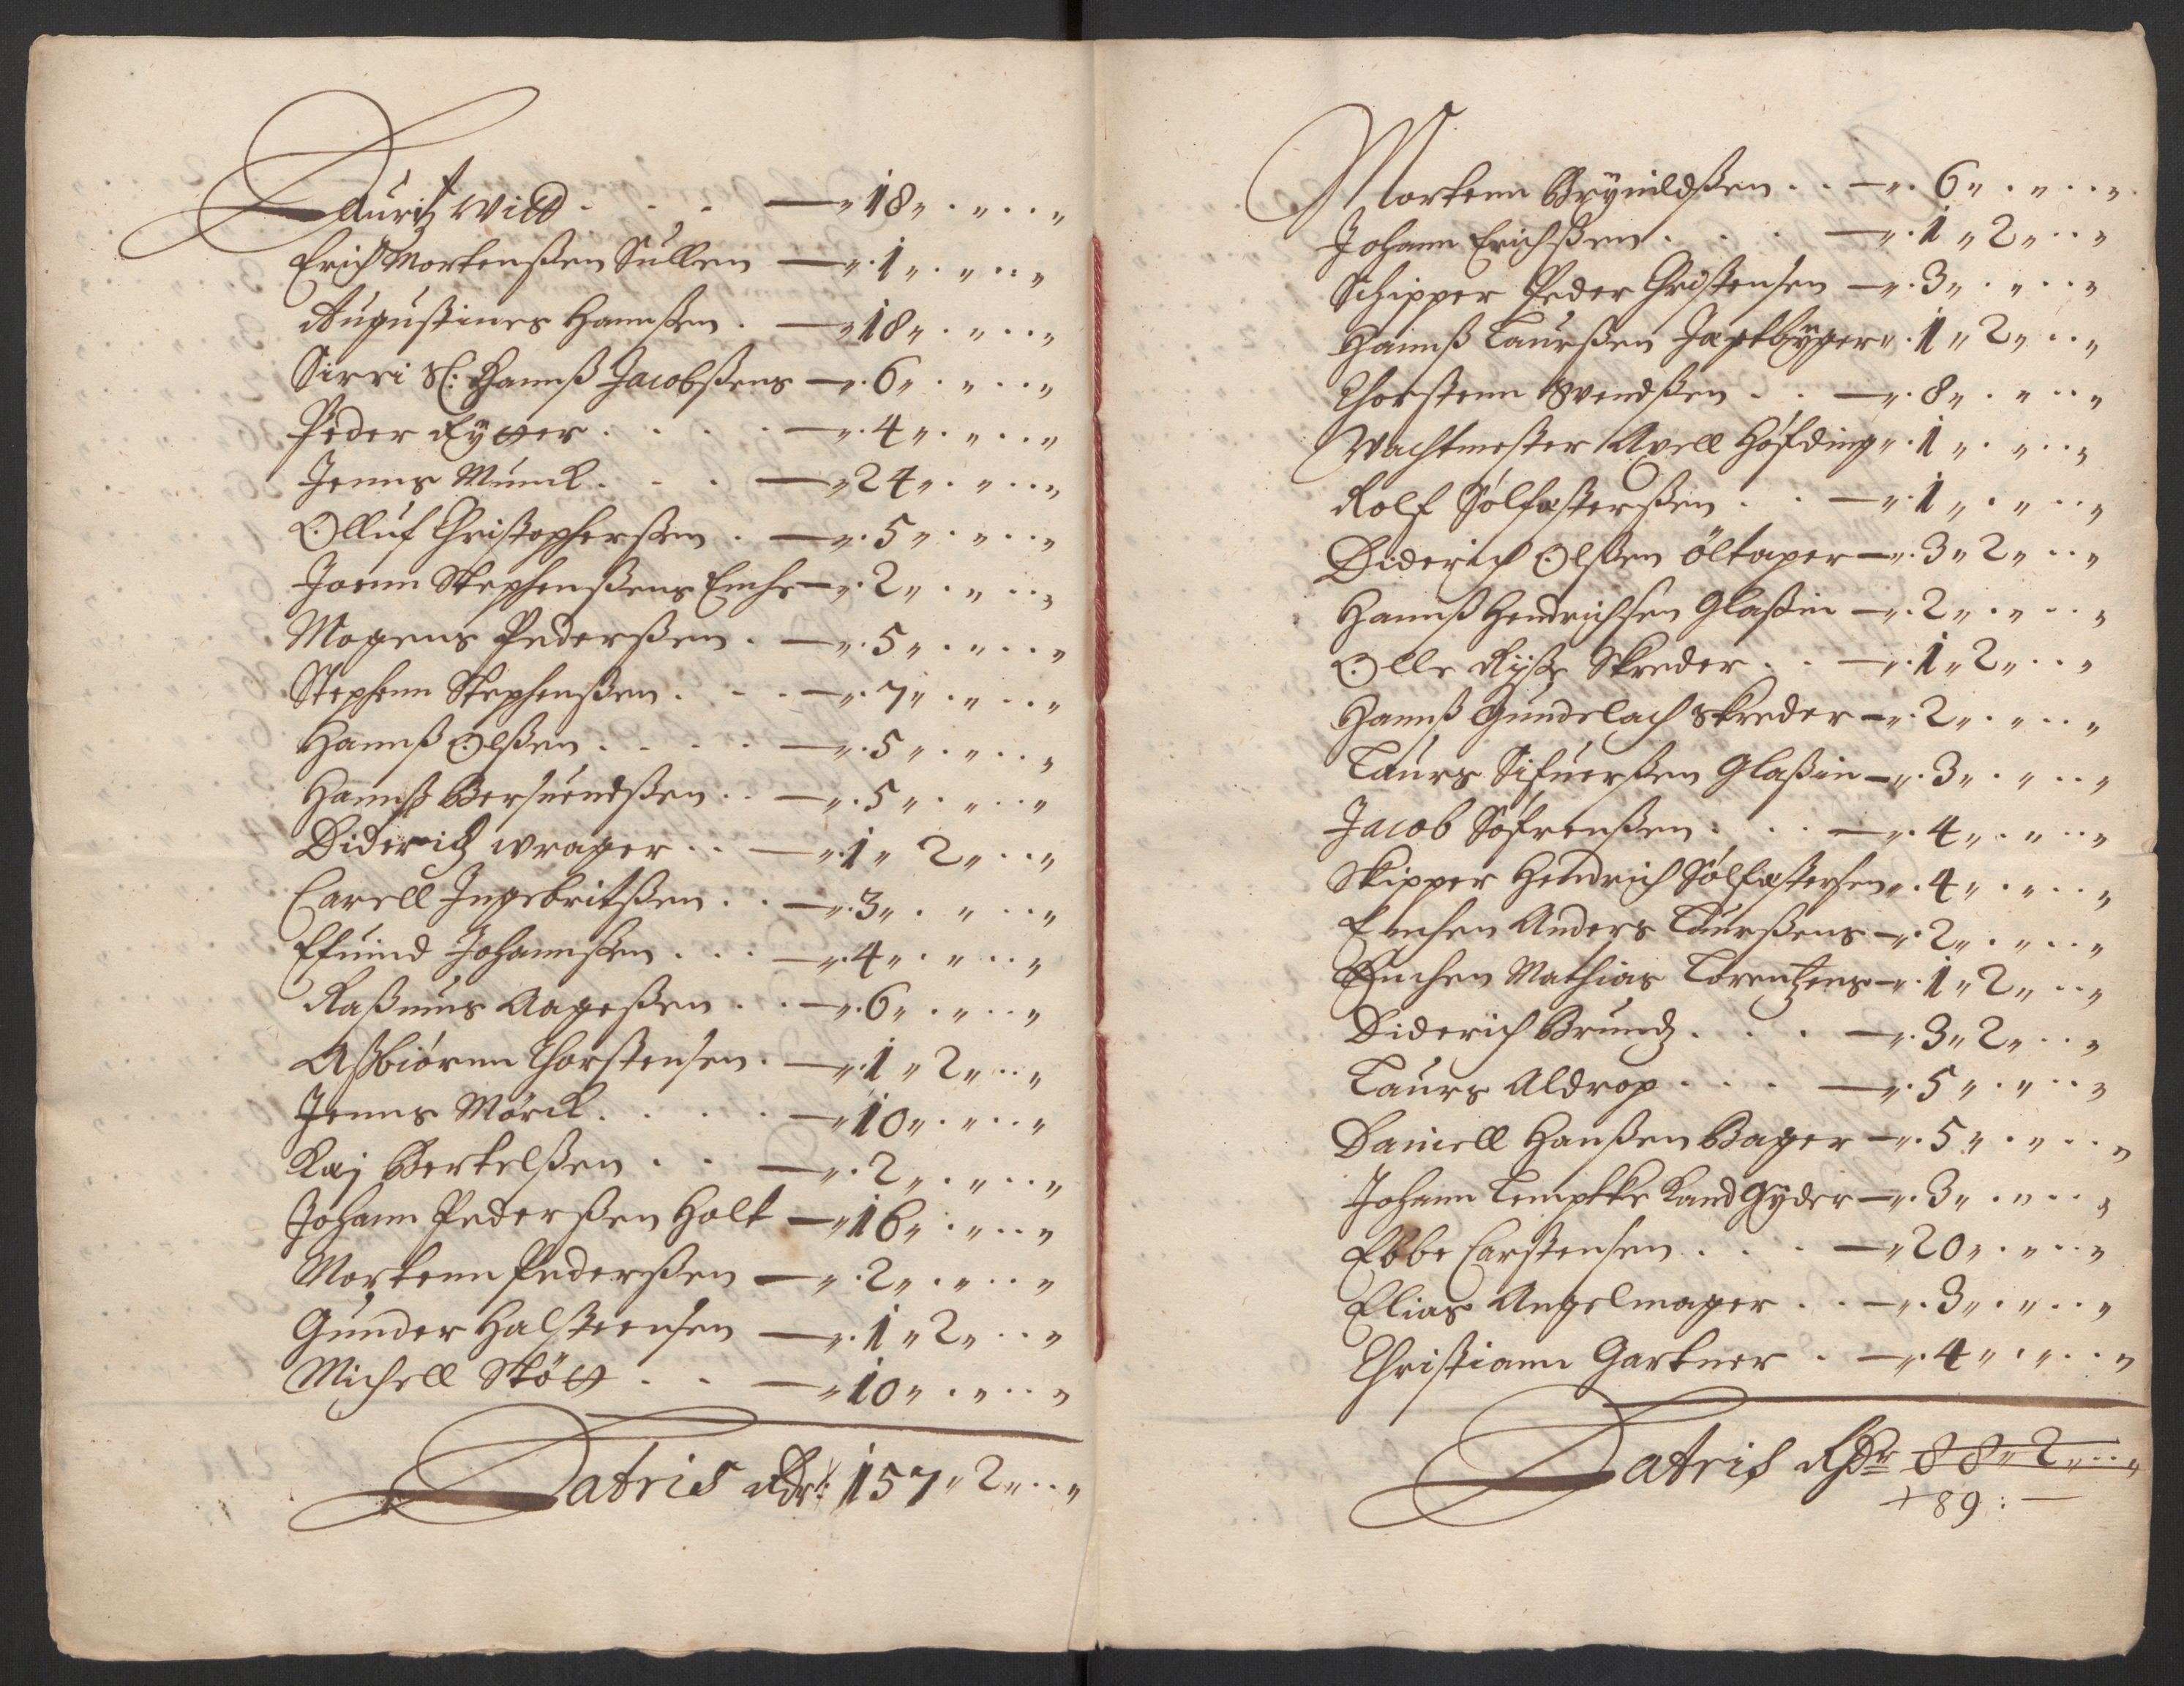 Lauritz Wild . . . — „ 18 „ . „ . . „
Erich Mortenßen Sullen — „ . 1 „ . „ . . „
Augustinus Hannßen . — „ 18 „ . „ . . „
Sirri Sl: Hannß Jacobßens — „ . 6 „ . „ . . „
Peder Rytter . . . . — „ . 4 „ . „ . . „
Jenns Munck . . . — „ 24 „ . „ . . „
Olluf Christopherßen . — „ . 5 „ . „ . . „
Joenn Stephenßens Enche — „ . 2 „ . „ . . „
Mogens Pederßen . — „ . 5 „ . „ . . „
Stephenn Stephenßen . . . — „ . 7 „ . „ . . „
Hannß Olßen . . . . — „ . 5 „ . „ . . „
Hannß Bersuendßen . . — „ . 5 „ . „ . . „
Diderich wrager . . — „ . 1 „ 2 „ . . „
Carell Ingebritßen . . — „ . 3 „ . „ . . „
Efuind Johannßen . . . — „ . 4 „ . „ . . „
Raßmus Aageßen . . — „ . 6 „ . „ . . „
Aßbiørnn Thorstensen . — „ . 1 „ 2 „ . . „
Jenns Mørck . . . . — „ 10 „ . „ . . „
Kaj Bertelßen . . — „ . 2 „ . „ . . „
Johann Pederßen Holt — „ 16 „ . „ . . „
Mortenn Pederßen — „ . 2 „ . „ . . „
Gunder Halsteensen — „ . 1 „ 2 „ . . „
Michell Stött . . — „ 10 „ . „ . . „
Latris Rdr: 157 „ 2 „ . . „
Mortenn Brynildßen . . — „ . 6 „ . „ . . „
Johann Erichßen . . . — „ . 1 „ 2 „ . . „
Schipper Peder Christensen — „ . 3 „ . „ . . „
Hannß Laurßen Jagtbyger „ . 1 „ 2 „ . . „
Thorstenn Svendßen . . — „ . 8 „ . „ . . „
Wachtmester Axell Høfding „ . 1 „ . „ . . „
Rolf Sølfasterßen . . — „ . 1 „ . „ . . „
Diderich Olßen öltaper — „ . 3 „ 2 „ . . „
Hannß Hendrichsen Glaßin — „ . 2 „ . „ . . „
Olle Ryße Skreder . . — „ . 1 „ 2 „ . . „
Hannß Gundelach Skreder — „ . 2 „ . „ . . „
Laurs Sifuerßen Glaßin — „ . 3 „ . „ . . „
Jacob Søfrenßen . . . — „ . 4 „ . „ . . „
Skipper Hendrich Sølfastersen „ . 4 „ . „ . . „
Enchen Anders Laurßens — „ . 2 „ . „ . . „
Enchen Mathias Lorentzens — „ . 1 „ 2 „ . . „
Diderich Brundz . . . — „ . 3 „ 2 „ . . „
Laurs Aldrop . . . — „ . 5 „ . „ . . „
Daniell Hanßen Bager — „ . 5 „ . „ . . „
Johann Lemptke Kand Gyder — „ . 3 „ . „ . . „
Ebbe Carstensen . . . — „ 20 „ . „ . . „
Elias Angelmager . . — „ . 3 „ . „ . . „
Christiann Gartner . — „ . 4 „ . „ . . „
Latris Rdr 88 „ 2 „ . . „
+ 89 : —